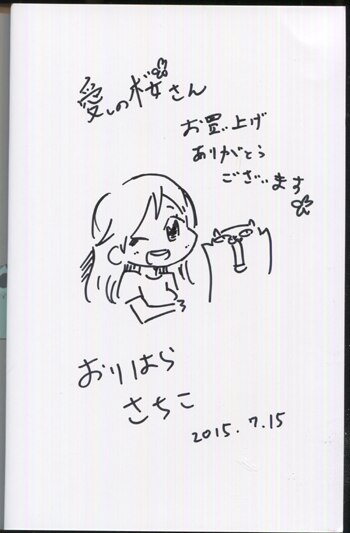 愛しの桜さん
お買い上げ
ありがとう
ございます
おりはら
さちこ
2015.7.15